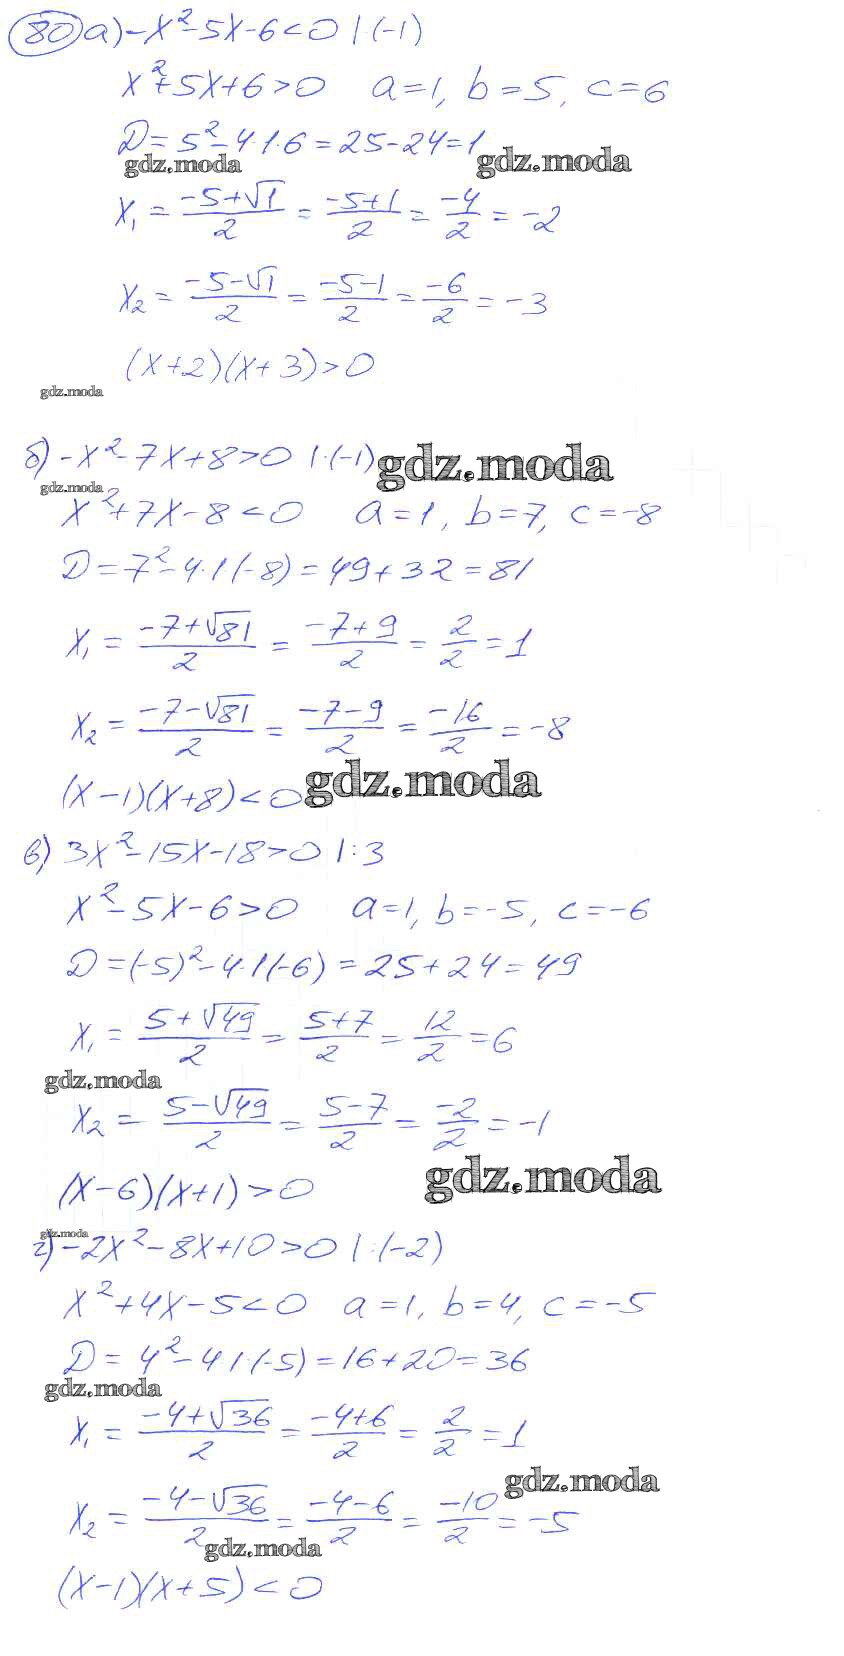 80 а) -x²-5x-6<0 | (-1)
x²+5x+6>0 a=1, b=5, c=6
D=5²-4·1·6=25-24=1
gdz.moda gdz.moda
x₁=(-5+√1)/2=(-5+1)/2=-4/2=-2
x₂=(-5-√1)/2=(-5-1)/2=-6/2=-3
(x+2)(x+3)>0
gdz.moda
б) -x²-7x+8>0 |·(-1) gdz.moda
gdz.moda
x²+7x-8<0 a=1, b=7, c=-8
D=7²-4·1(-8)=49+32=81
x₁=(-7+√81)/2=(-7+9)/2=2/2=1
x₂=(-7-√81)/2=(-7-9)/2=-16/2=-8
(x-1)(x+8)<0 gdz.moda
в) 3x²-15x-18>0 |:3
x²-5x-6>0 a=1, b=-5, c=-6
D=(-5)²-4·1(-6)=25+24=49
x₁=(5+√49)/2=(5+7)/2=12/2=6
gdz.moda
x₂=(5-√49)/2=(5-7)/2=-2/2=-1
(x-6)(x+1)>0 gdz.moda
gdz.moda
г) -2x²-8x+10>0 |:(-2)
x²+4x-5<0 a=1, b=4, c=-5
D=4²-4 1·(-5)=16+20=36
gdz.moda
x₁=(-4+√36)/2=(-4+6)/2=2/2=1
gdz.moda
x₂=(-4-√36)/2=(-4-6)/2=-10/2=-5
gdz.moda
(x-1)(x+5)<0